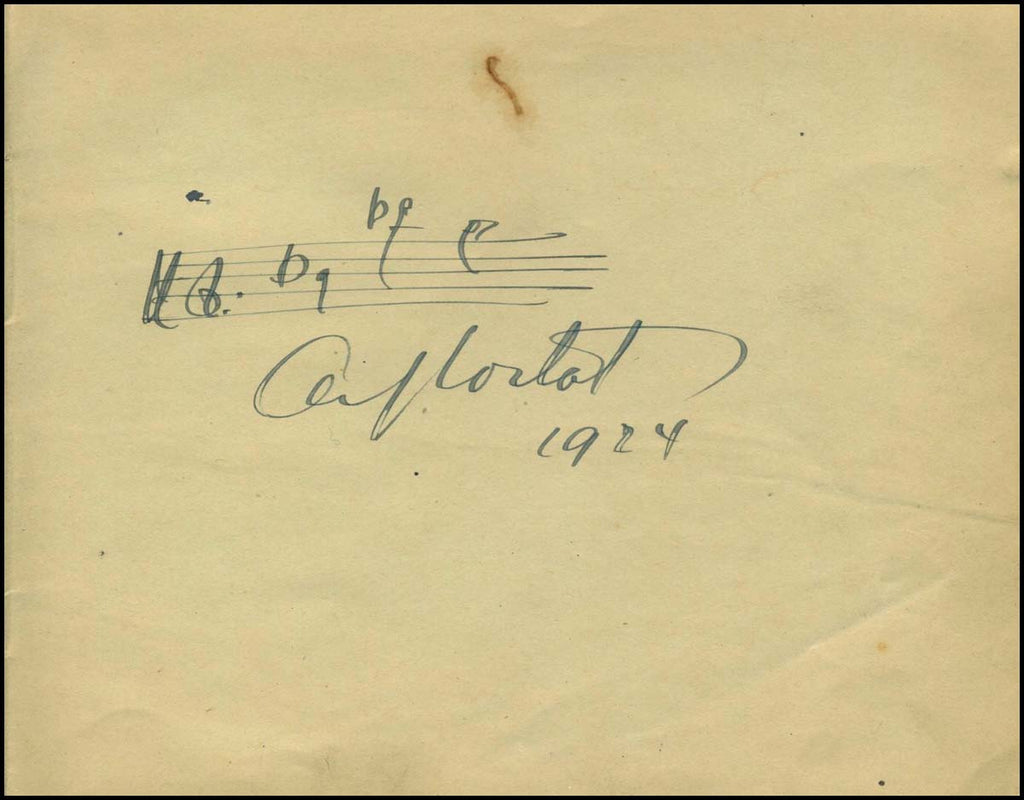 Alf Cortot
1924